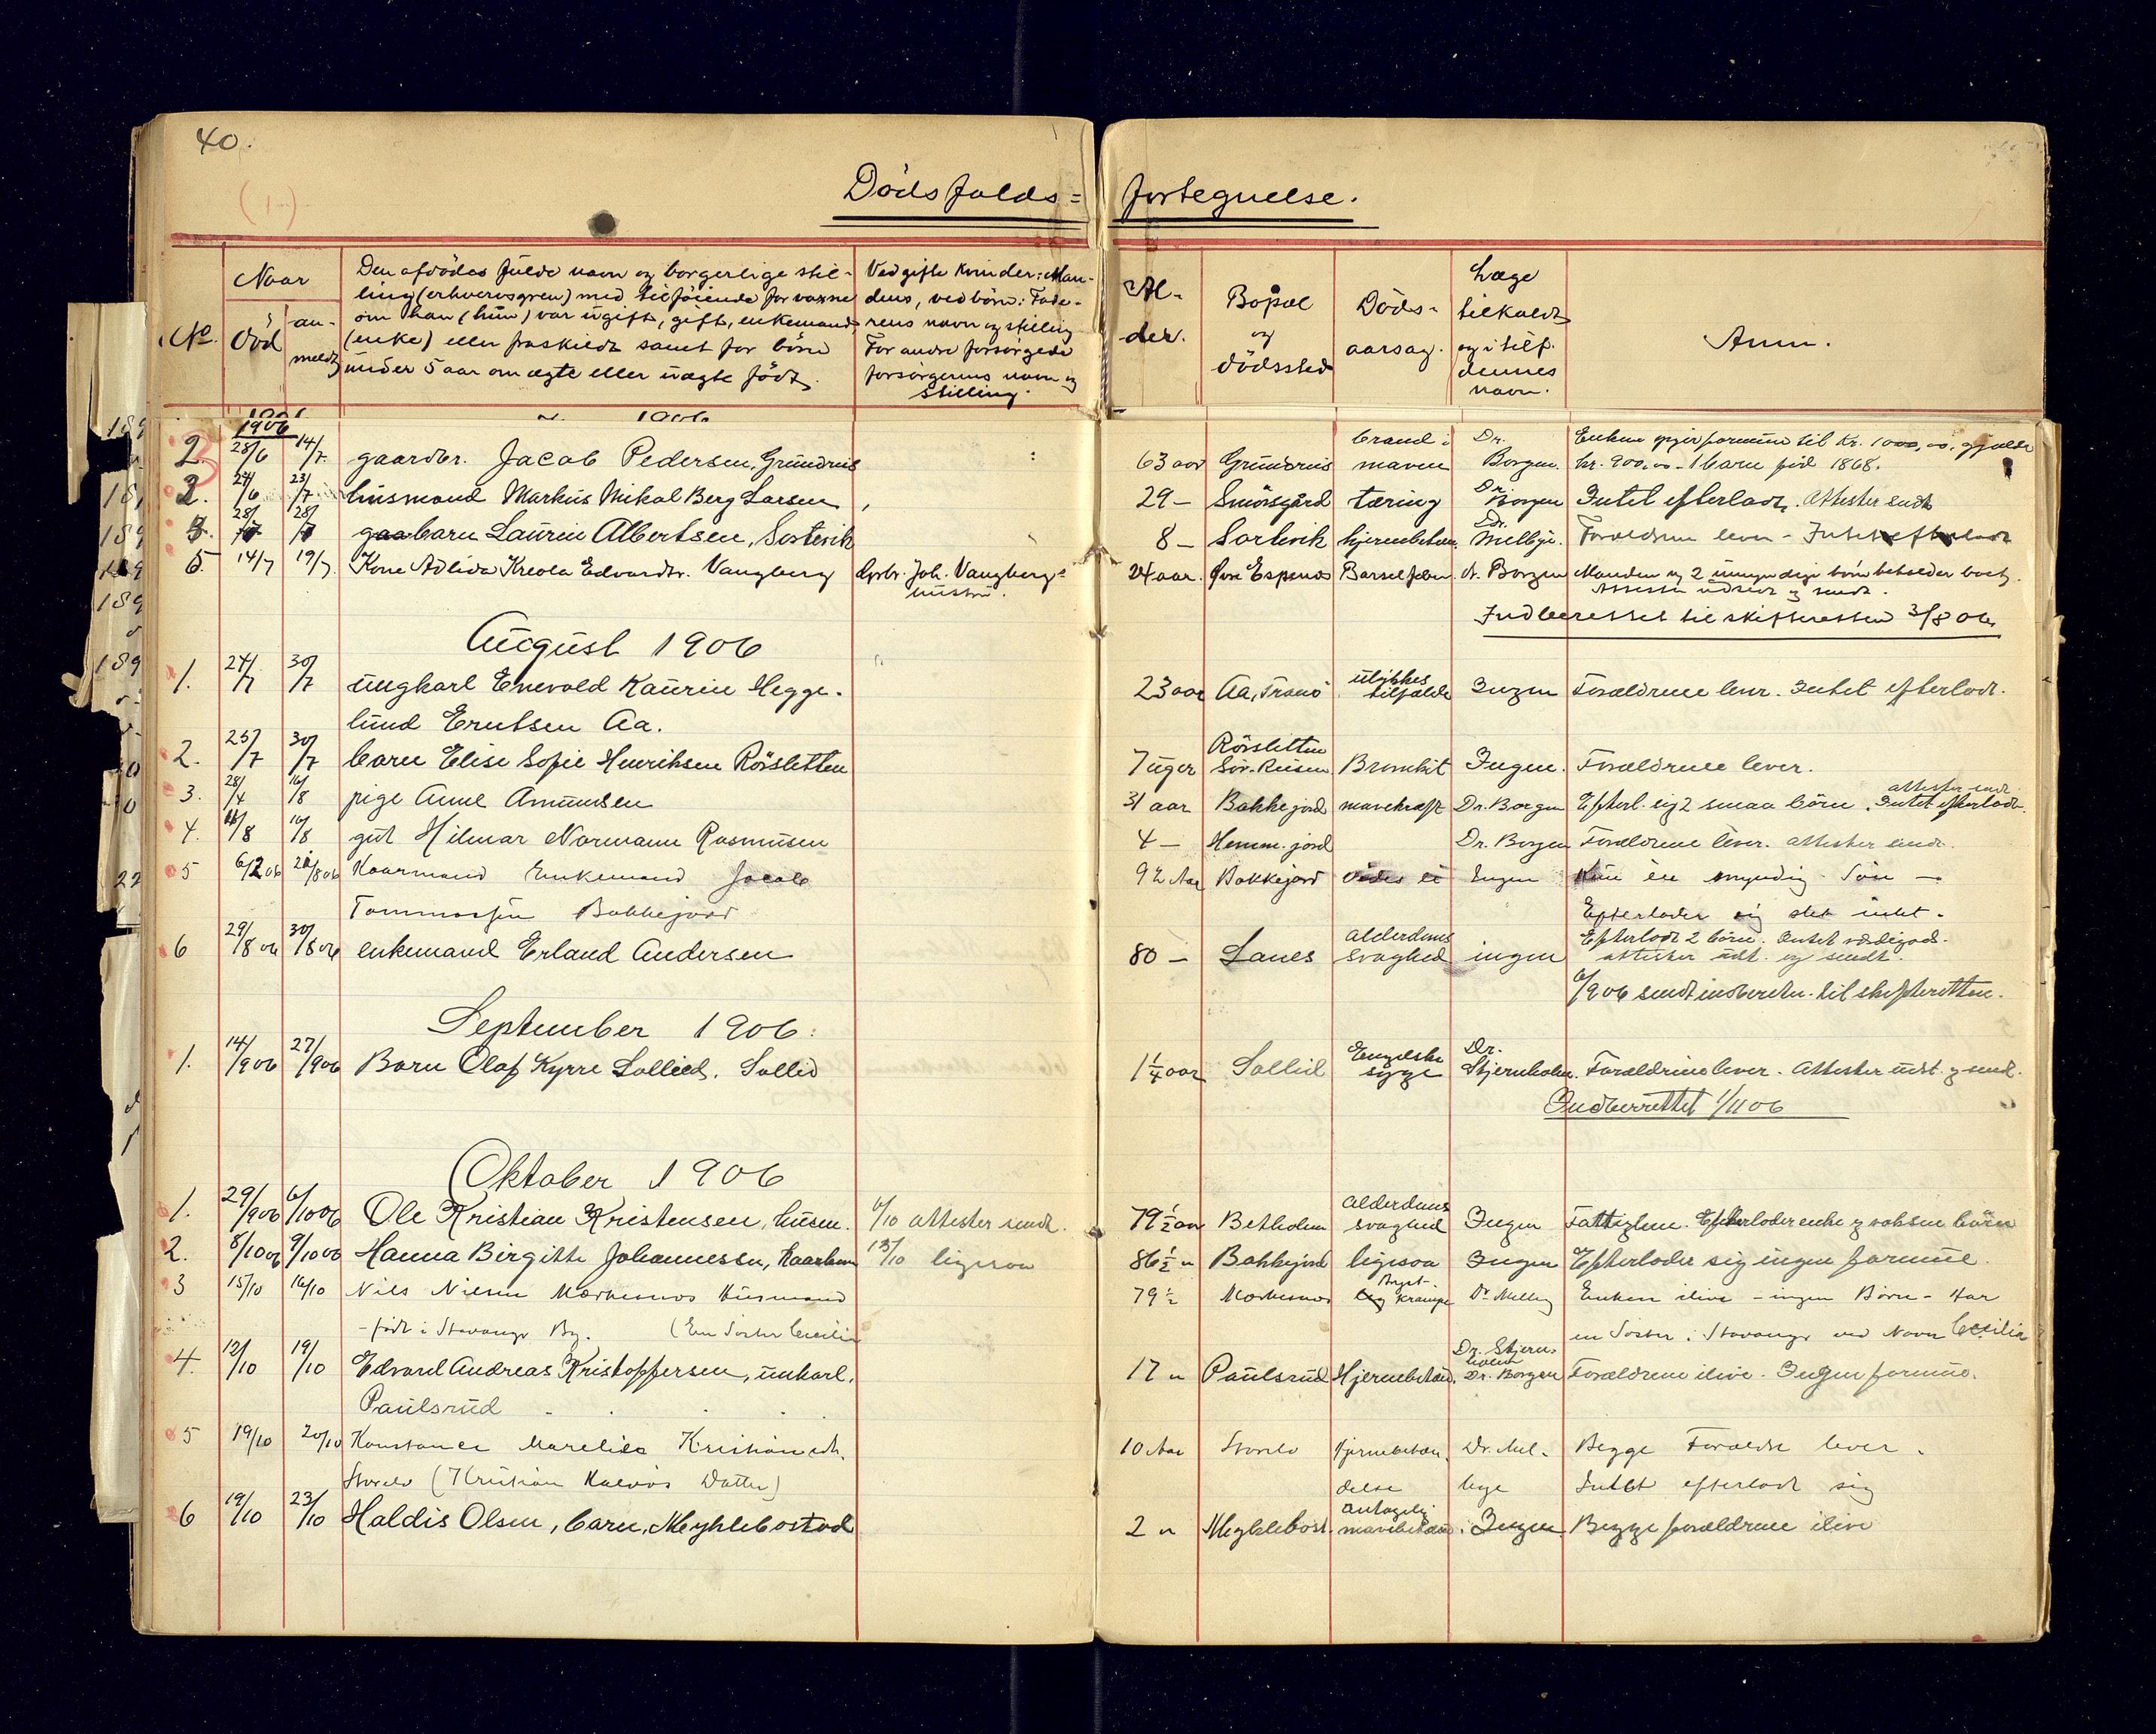 40.
Dödsfalds=fortegnelse.
No.
Naar
död
an-
meldt
Den afdödes fulde navn og borgerlige stil-
ling (erhvervsgren) med tilföiende for voxne
om han (hun) var ugift, gift, enkemand
(enke) eller fraskildt samt for börn
under 5 aar om ægte eller uægte födt.
Ved gifte kvinder: Man-
dens, ved börn: Fade-
rens navn og stilling
For andre forsörgede
forsörgerens navn og
stilling.
Al-
der.
Bopæl
og
dödssted
Döds-
aarsag.
Læge
tilkaldt
og i tilf.
dennes
navn.
Anm.
1906
2 28/6 14/7 gaardbr. Jacob Pedersen, Grundnes 63 aar Grundnes brand i maven Dr. Borgen. Enken opgir formue til kr. 1000,00, gjælde
kr. 900,00 - 1 barn född 1868.
2. 24/6 23/7 husmand Markus Mikal Berg Larsen 29 - Smörsgård tæring Dr. Borgen Intet efterladt. Attester sendt
28/ 28/ barn Laurin Albertsen, 8 - hjernebetæn. Dr. Melbye. Forældrene lever - Intet efterladt
5. 14/7 19/7 Kone Adlida Kreola Edvardtr. Vangberg Grbr. Joh. Vangbergs
hustru.
24 aar. Övre Espenes Barselfeber Dr. Borgen Manden og 2 umyndige börn beholder boet.
Attester udstedt og sendt.
Indberettet til skifteretten 3/8 06
August 1906
1. 24/7 30/7 ungkarl Enevold Kaurin Hegge-
lund Erntsen Aa.
23 aar Aa, Tranö ulykkes tilfælde Ingen Forældrene lever. Intet efterladt.
2. 25/7 30/7 barn Elise Sofie Henriksen Rörsletten 7 uger Rörsletten Sör-Reisen Bronkit Ingen. Forældrene lever.
3. 28/4 16/8 pige Anne Amundsen 31 aar Bakkejord mavekræft Dr. Borgen Efterl. sig 2 smaa börn. Intet efterladt. attester sendt
4. /8 16/8 gut Hilmar Normann Rasmusen 4 - Hemm.jord Dr. Borgen Forældrene lever. attester sendt.
5 6/2 06 21/8 06 Kaarmand Enkemand Jacob
Tommassen Bakkejord
92 Aar Bakkejord vides ei Ingen Kun en myndig Sön -
Efterlader sig slet intet.
6 29/8 06 30/8 06 enkemand Erland Andersen 80 - Lanes alderdoms svaghed ingen Efterladt 2 börn. Intet værdigods.
attester udst. og sendt.
6/9 06 sendt indberetn. til skifteretten.
September 1906:
1. 14/9 06 27/9 06 Barn Olaf Kyrre Sollied. Sollid 1 1/4 aar Sollid Engelske syge Dr. Stjernholm. Forældrene lever. Attester udst. og send.
Indberettet 1/11 06
Oktober 1906
1. 29/9 06 6/10 06 Ole Kristian Kristensen, husm. 6/10 attester sendt. 79 1/2 aar Betholm alderdoms svaghed Ingen Fattiglem. Efterlader enke og voksne börn
2. 8/10 06 9/10 06 Hanna Birgitte Johannessen, Kaarkone 13/10 ligesaa 86 1/2 " Bakkejord ligesaa Ingen Efterlader sig ingen formue.
3 15/10 16/10 Nils Nilsen Mærkesnæs Husmand
- födt i Stavanger By. (En Söster Cecilie
79 1/2 Mærkesnæs Bryst- krampe Dr Melby Enken ilive - ingen Börn - Har
en Söster i Stavanger ved Navn Cecilia
4. 12/10 19/10 Edvard Andreas Kristoffersen, unkarl.
Paulsrud
17 " Paulsrud Hjernebetænd. Dr. Stjern-
holm
Dr. Borgen Forældrene ilive. Ingen formue.
5 19/10 20/10 Konstance Marelida Kristiansdt.
Storelv (Kristian Kalvös Datter)
10 Aar Storelv Hjernebetæn-
delse Dr. Mel-
bye Begge Forældre lever.
Intet efterladt sig
6 19/10 23/10 Haldis Olsen, barn, Meghlebostad 2 " Meghlebost. antagelig mavebetænd. Ingen Begge forældrene ilive